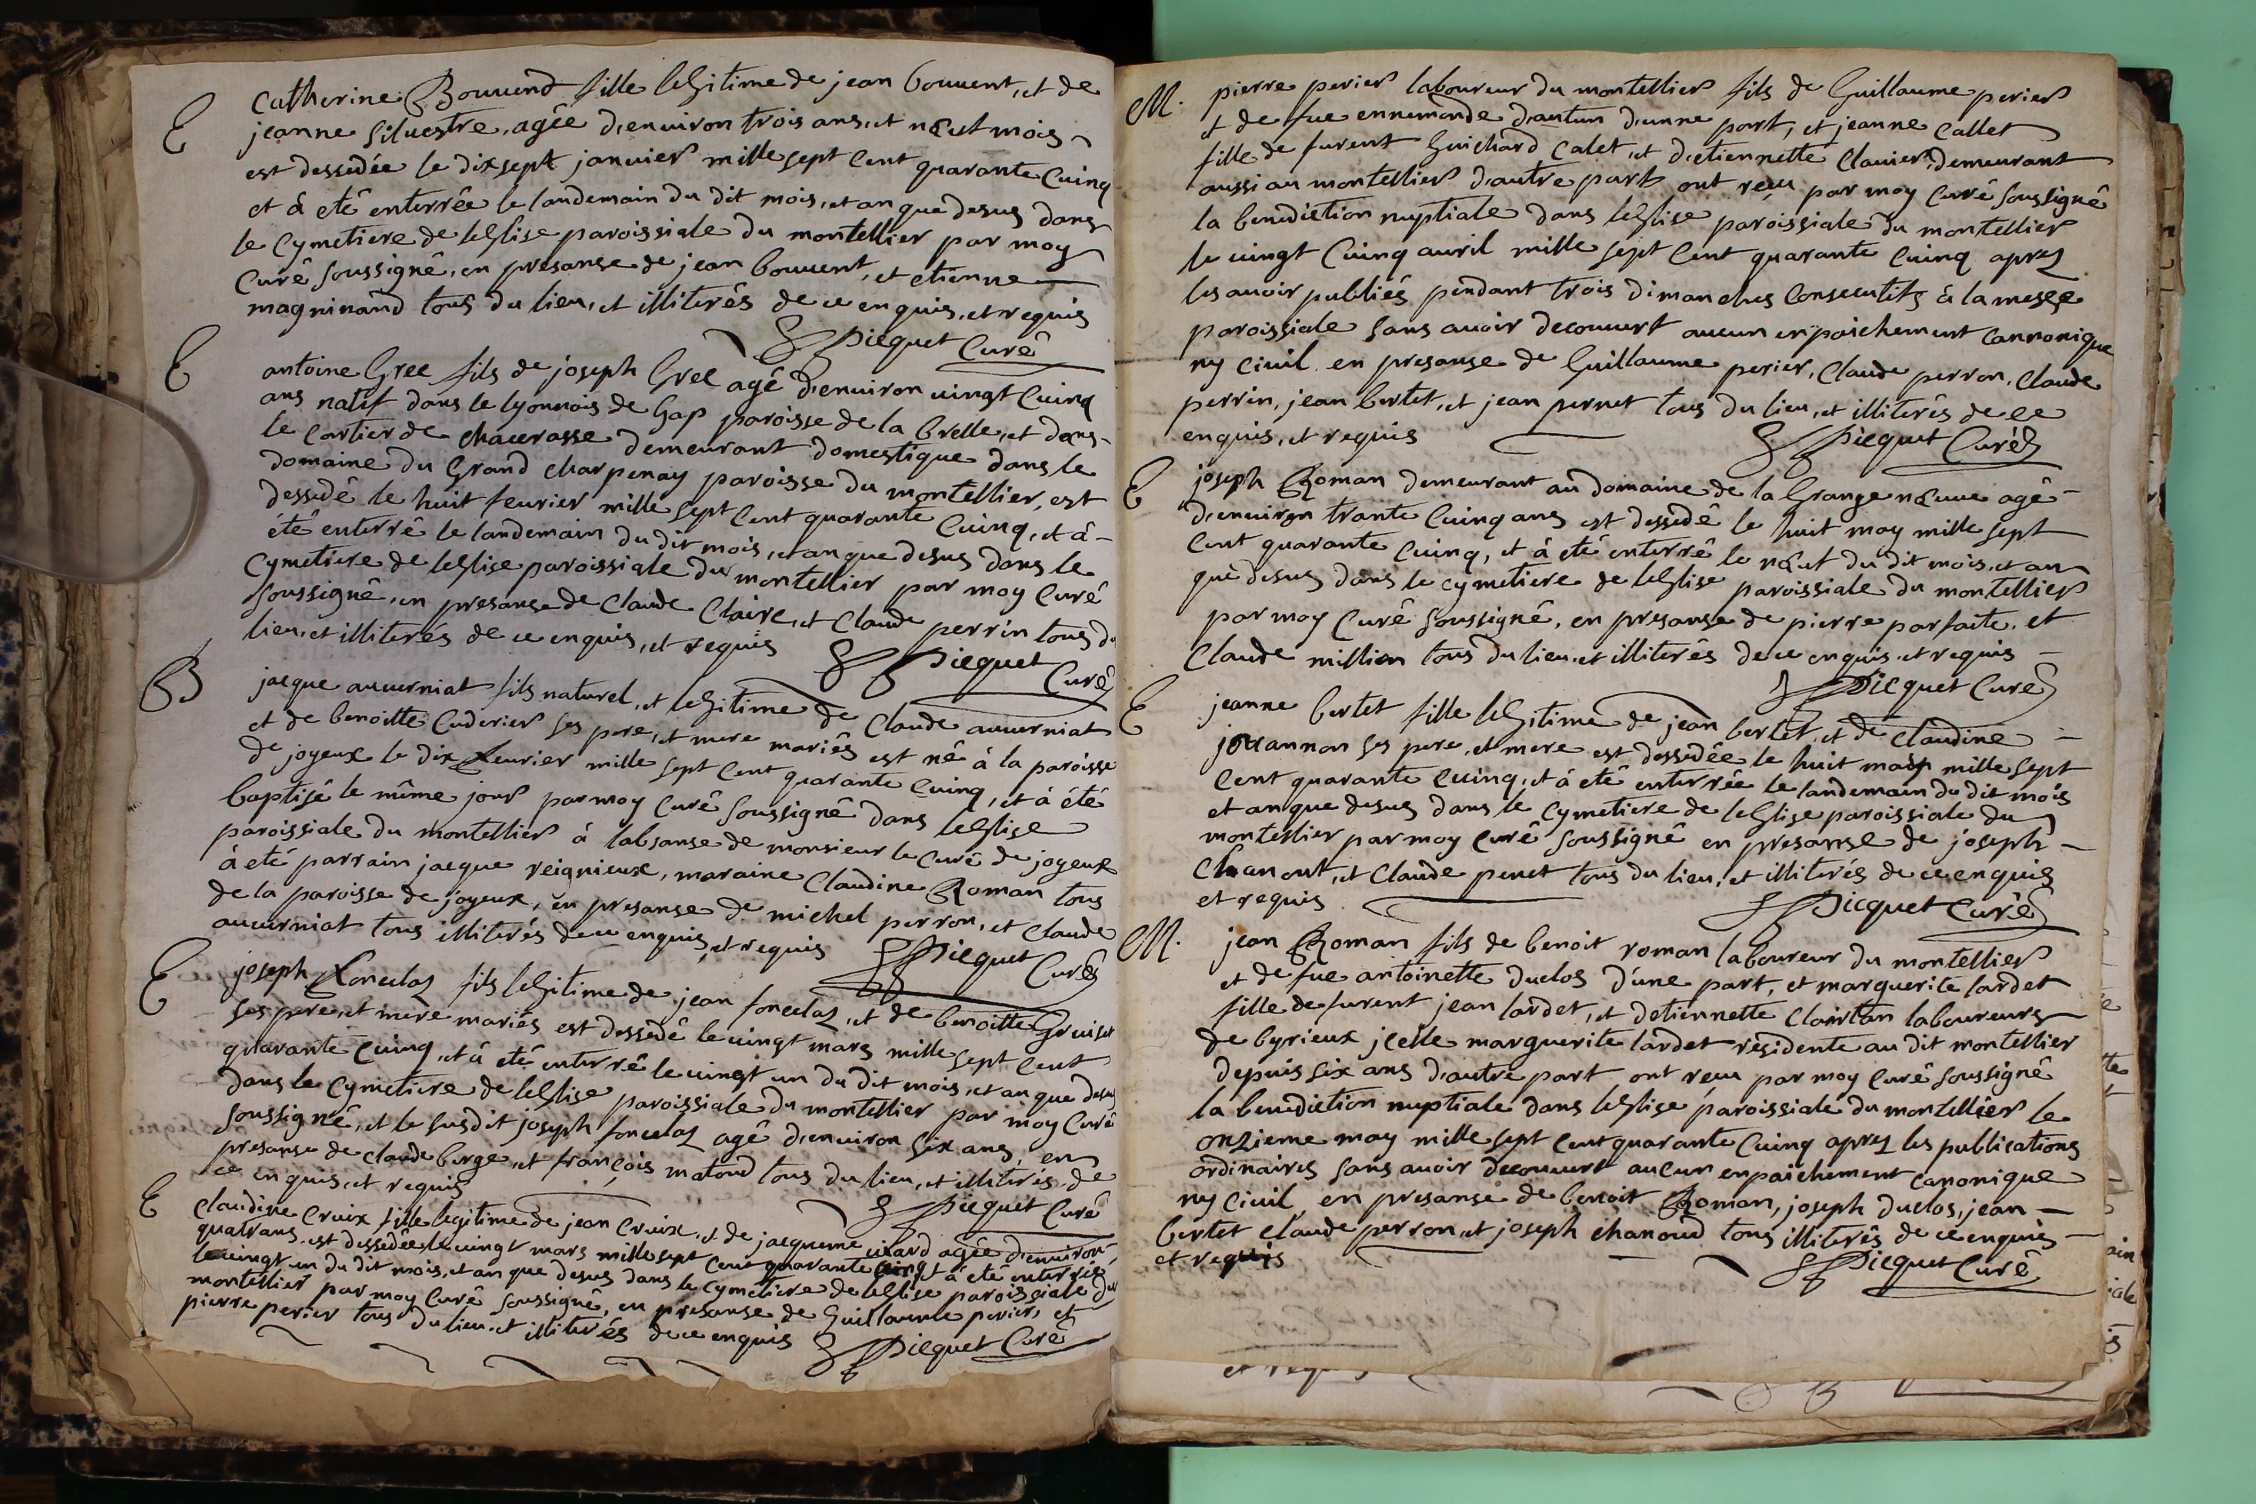 E
Catherine Bouvend fille legitime de jean bouvent, et de
jeanne siluestre, agée d'enuiron trois ans, et nœuf mois
est dessedée le dixsept januier mille sept cent quarante Cuinq
et â eté enterrée le landemain du dit mois, et an que desus dans
le cymetiere de leglise paroissiale du montellier par moy
Curé soussigné, en presanse de jean bouvent, et etienne
magninand tous du lieu, et illiterés de ce enquis, et requis
Picquet Curé
E
antoine Gree fils de joseph Gree agé d'enuiron uingt Cuinq
ans natif dans le lyonnois de Gap paroisse de la brelle, et dans
le cartier de chacerasse demeurant domestique dans le
domaine du Grand charpenay paroisse du montellier, est
dessedé le huit feurier mille sept cent quarante Cuinq, et â
été enterré le landemain du dit mois, et an que desus dans le
Cymetiere de leglise paroissiale du montellier par moy Curé
soussigné, en presanse de Claude Claire, et Claude perrin tous du
lieu, et illiterés de ce enquis, et requis
Picquet Curé
B
jacque auuerniat fils naturel, et legitime de Claude auuerniat
et de benoitte Cuderier ses pere, et mere mariés est né à la paroisse
de joyeux le dix feurier mille sept cent quarante Cuinq, et à été
baptisé le même jour par moy Curé soussigné dans leglise
paroissiale du montellier à labsanse de monsieur le Curé de joyeux
à eté parrain jacque reignieux, maraine Claudine Roman tous
de la paroisse de joyeux, en presanse de michel perron, et Claude
auuerniat tous illiterés de ce enquis, et requis
Picquet Curé
E
joseph foncelas fils legitime de jean foncelas, et de benoitte Gruiset
ses pere, et mere mariés est dessedé le uingt mars mille sept cent
quarante Cuinq, et â eté enterré le uingt un du dit mois, et an que desus
dans le Cymetiere de leglise paroissiale du montellier par moy Curé
soussigné, et le susdit joseph foncelas agé d'enuiron six ans, en
presanse de claude berge, et françois matoud tous du lieu, et illiterés de
ce enquis, et requis
Picquet Curé
E
Claudine Cruix fille legitime de jean Cruix, et de jacqueme uiard agée d'enuiron
quatrans, est dessedée le uingt mars mille sept cent quarante Cuinq et â eté enterrée
le uingt un du dit mois, et an que desus dans le Cymetiere de leglise paroissiale du
montellier par moy Curé soussigné, en presanse de Guillaume perier, et
pierre perier tous du lieu, et illiterés de ce enquis
Picquet Curé
M.
pierre perier laboureur du montellier fils de Guillaume perier
et de fue ennemonde dantun d'unne part, et jeanne callet
fille de furent Guichard Calet, et d'etiennette Clauier, demeurant
aussi au montellier d'autre part ont reçu par moy Curé soussigné
la benediction nuptiale dans leglise paroissiale du montellier
le uingt Cuinq auril mille sept cent quarante Cuinq apres
les auoir publiés pendant trois dimanches Consecutifs à la messe
paroissiale sans auoir decouuert aucun enpaichement cannonique
ny ciuil en presanse de Guillaume perier, Claude perron, Claude
perrin, jean bertet, et jean pernet tous du lieu, et illiterés de ce
enquis, et requis
Picquet Curé
E
joseph Roman demeurant au domaine de la Grange nœuue agé
d'enuiron trante Cuinq ans est dessedé le huit may mille sept
cent quarante Cuinq, et â eté enterré le nœuf du dit mois, et an
que desus dans le cymetiere de leglise paroissiale du montellier
par moy Curé soussigné, en presanse de pierre parfaite, et
Claude million tous du lieu, et illiterés de ce enquis, et requis
Picquet Curé
E
jeanne bertet fille legitime de jean bertet, et de Claudine
jouannon ses pere, et mere est dessedée le huit may mille sept
cent quarante Cuinq, et â eté enterrée le landemain du dit mois
et an que desus dans le Cymetiere de leglise paroissiale du
montellier par moy Curé soussigné en presanse de joseph
Chanout, et Claude penet tous du lieu, et illiterés de ce enquis
et requis
Picquet Curé
M.
jean Roman fils de benoit roman laboureur du montellier
et de fue antoinette duclos d'une part, et marguerite lardet
fille de furent jean lardet, et detiennette Clairtan laboureurs
de byrieux jcelle marguerite lardet residente au dit montellier
depuis six ans d'autre part ont reçu par moy Curé soussigné
la benediction nuptiale dans leglise paroissiale du montellier le
onzieme may mille sept cent quarante Cuinq apres les publications
ordinaires sans auoir decouuert aucun enpaichement canonique
ny ciuil, en presanse de benoit Roman, joseph duclos, jean
bertet claude perron, et joseph chanoud tous illiterés de ce enquis
et requis
Picquet Curé